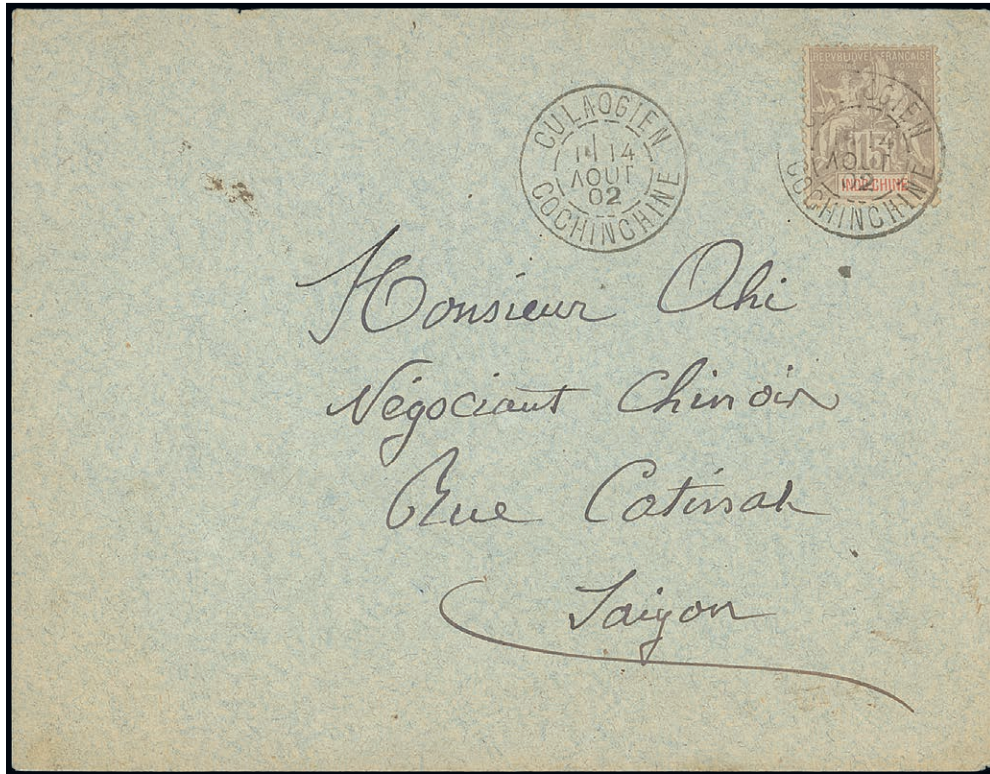 CULAOGIEN
14
AOUT
02
COCHINCHINE
REPUBLIQUE FRANCAISE
15
INDO-CHINE
14
AOUT
02
COCHINCHINE
Monsieur Ahi
Négociant Chinois
Rue Catinat
Saigon